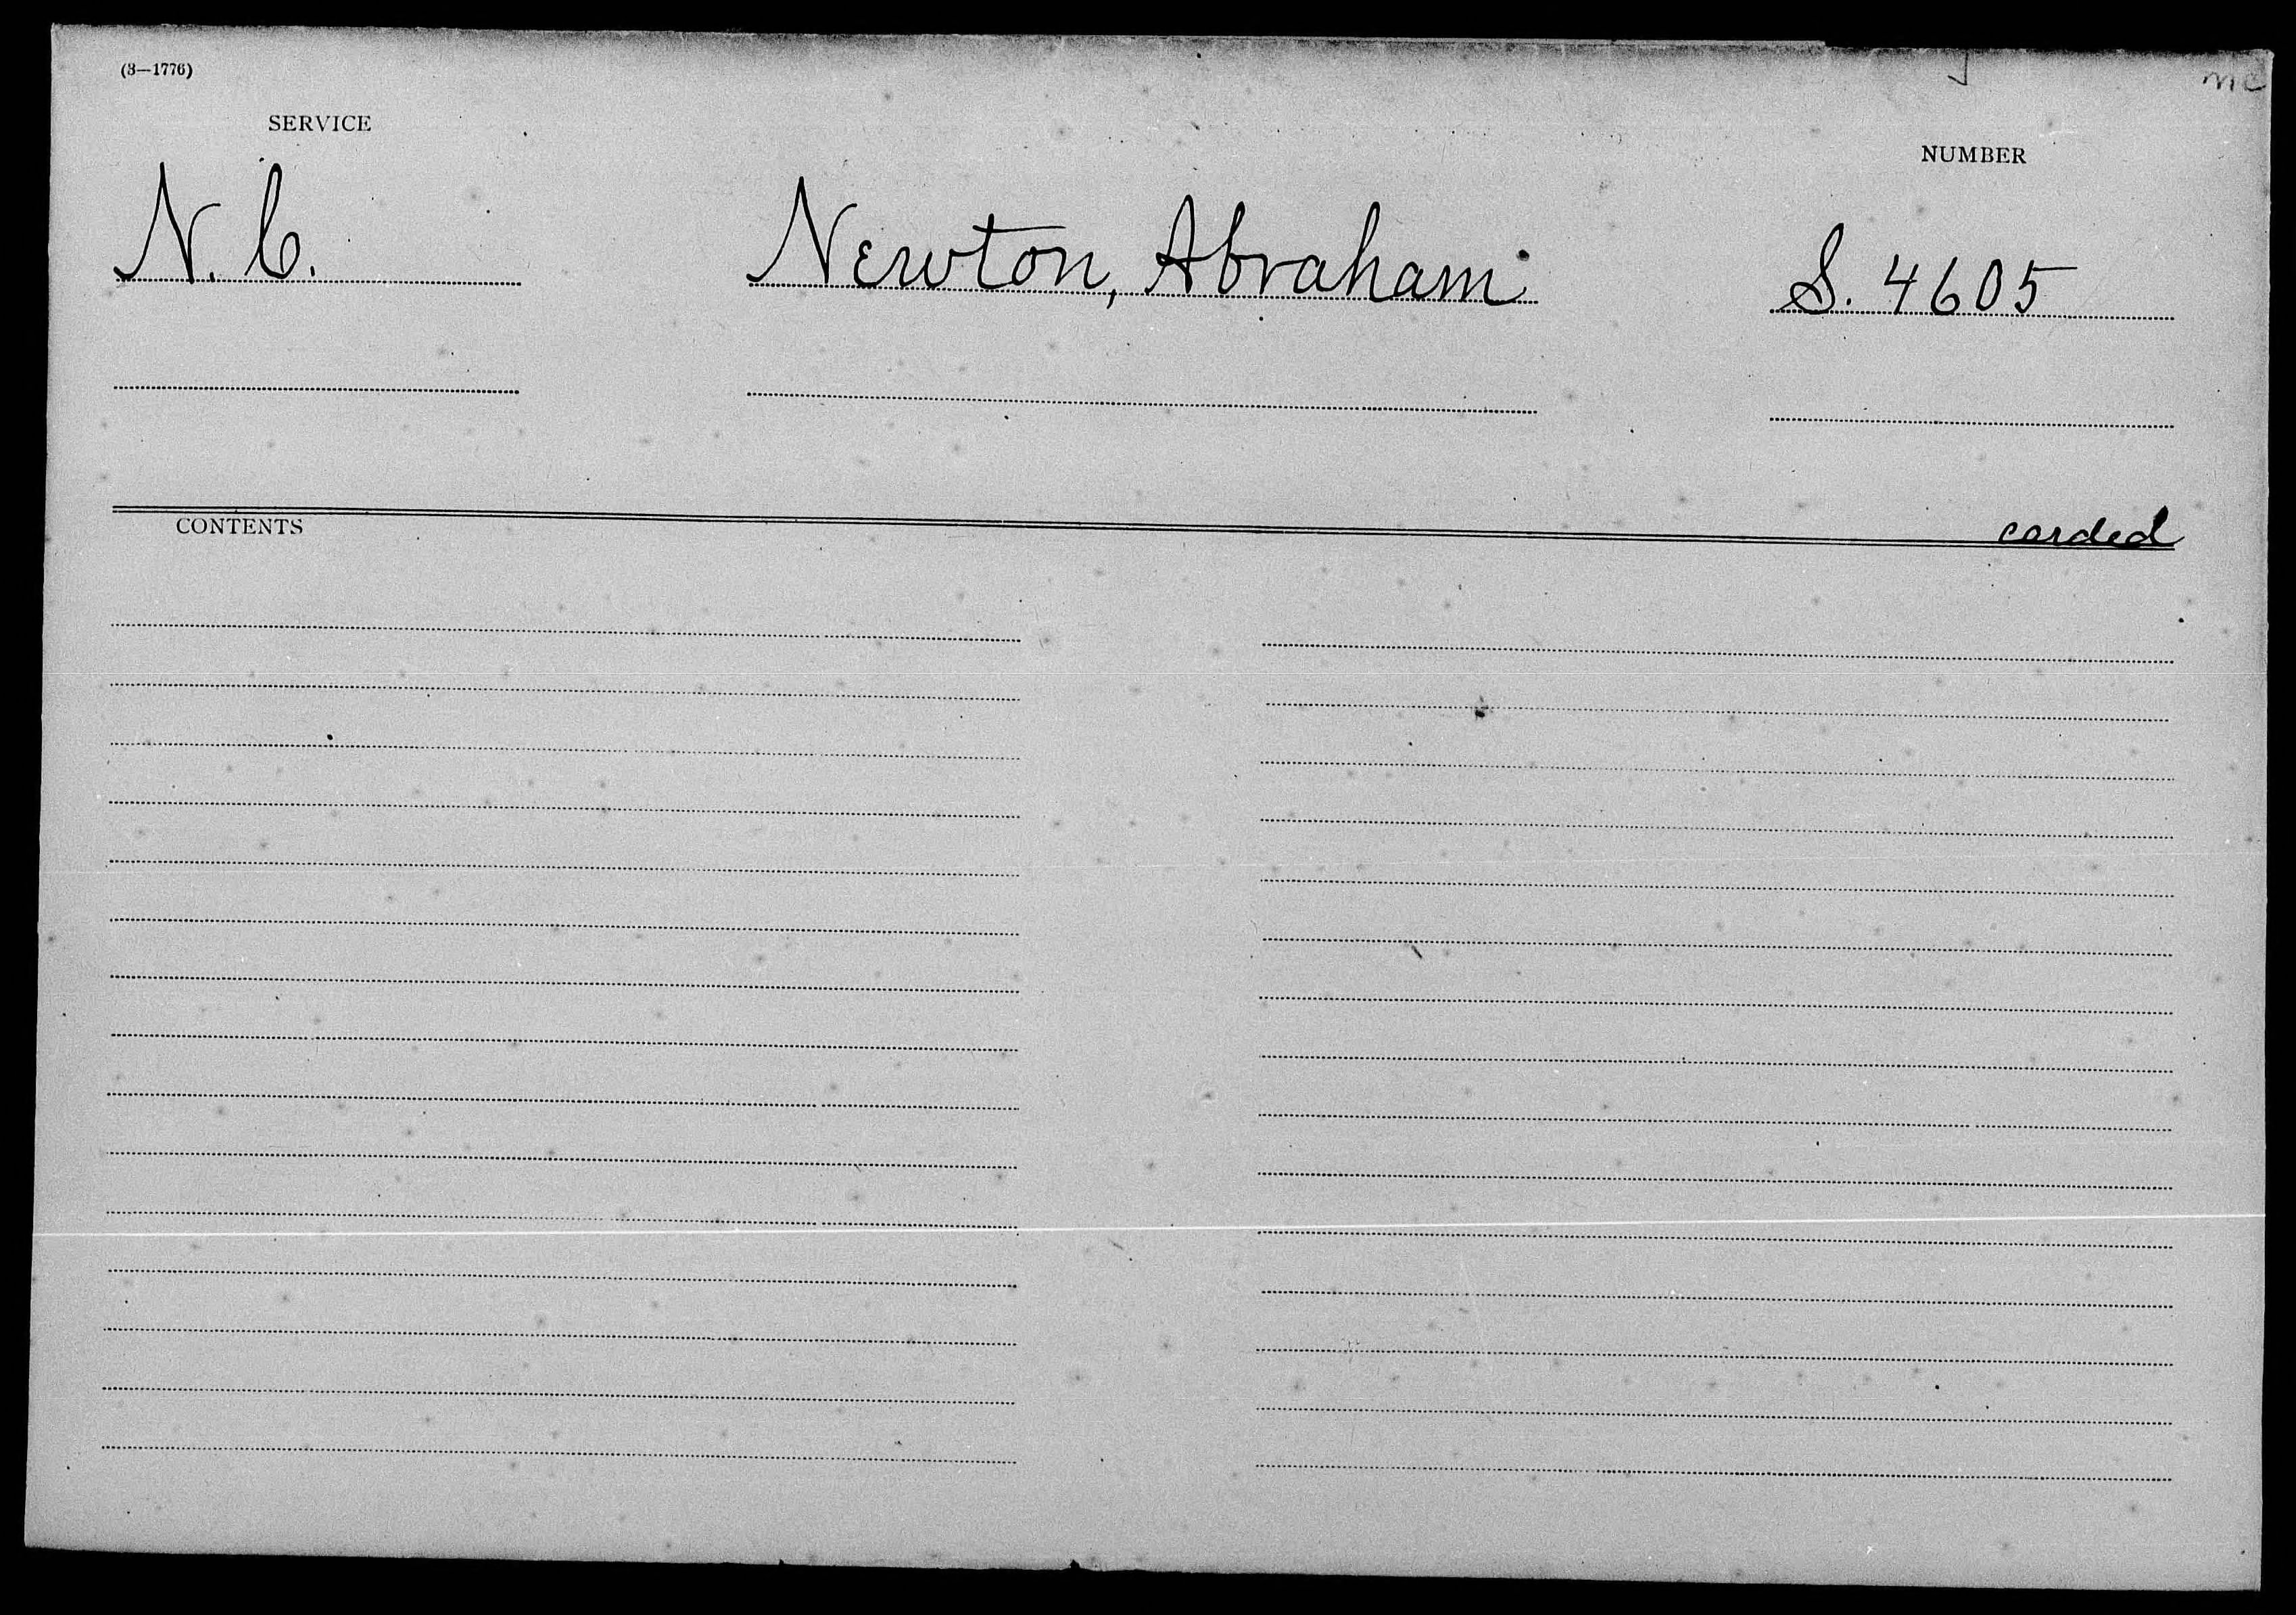 (3—1776)
mc
SERVICE
NUMBER
N. C.
Newton, Abraham
S. 4605
CONTENTS
carded